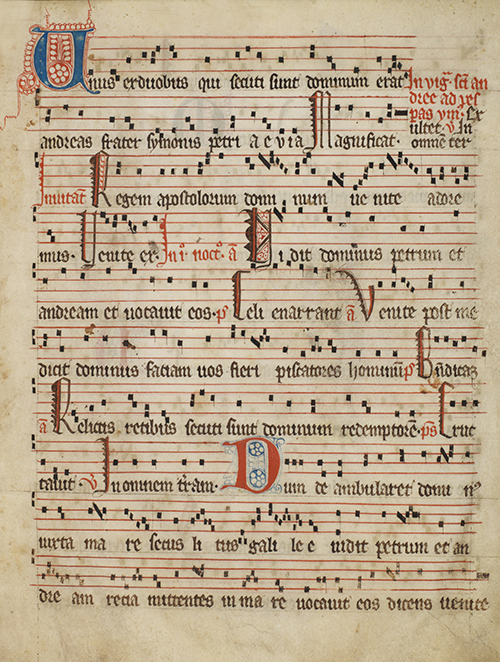 Unus ex duobus qui secuti sunt dominum erat In vig̃. sc̃i an
dree ad ves
pas ymn̄. Ex
ultet. V̄. In
omnem ter
andreas frater symonis petri a e v i a Magnificat.
Invitat̄ Regem apostolorum domi num ve nite adore
mus. Venite ex. In i. noct̄. a̅ Vi dit dominus petrum et
andream et vocavit eos. p̄ Celi enarrant a̅ Venite post me
dicit dominus faciam vos fieri piscatores hominum p̄ Bñdicā
a̅ Relictis retibus secuti sunt dominum redemptore. ps̄ Eruc
tavit. V̄ In omnem tr̄am. Dum de ambularet domi nꝰ
iuxta ma re secus li tus gali le e vidit petrum et an
dre am recia mittentes in ma re vocavit eos dicens venite